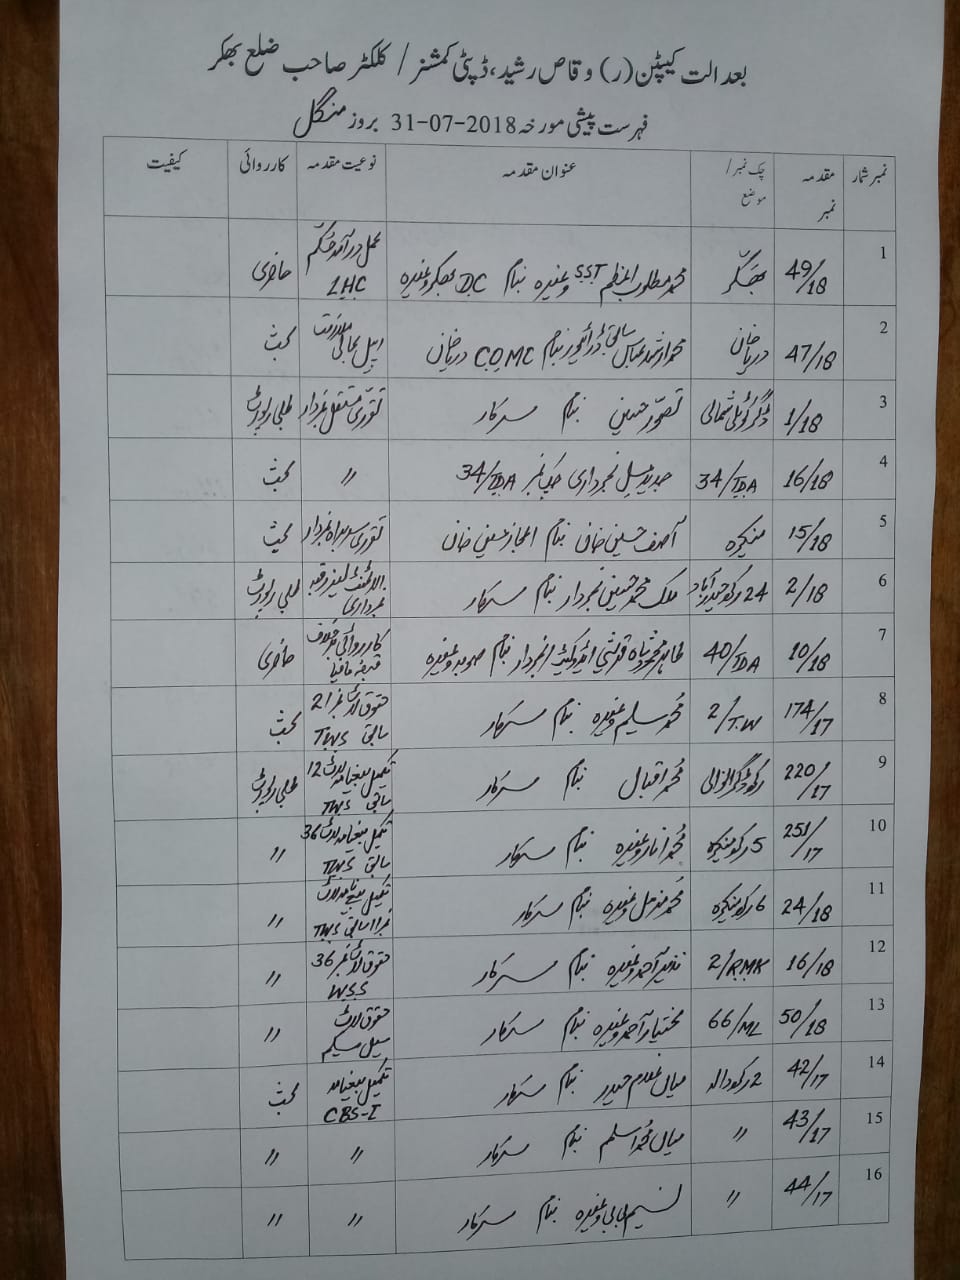 بعدالت کیپٹن (ر) وقاص رشید، ڈپٹی کمشنر / کلکٹر صاحب ضلع بھکر
فہرست پیشی مورخہ 31-07-2018 بروز منگل
نمبر شمار مقدمہ نمبر چک نمبر / موضع عنوان مقدمہ نوعیت مقدمہ کارروائی کیفیت
1 49/18 بھکر محمد مطلوب اعظم SST وغیرہ بنام DC بھکر وغیرہ عمل درآمد حکم LHC حاضری
2 47/18 دریا خان محمد ارشد عباس سابقی ڈرائیور بنام COMC دریا خان اپیل بحالی ملازمت بحث
3 1/18 شمالی تصور حسین بنام سرکار تقرری مستقل نمبردار طلبی رپورٹ
4 16/18 34/TDA جدید سیل نمبرداری چک نمبر 34/TDA 〃 بحث
5 15/18 منکیرہ آصف حسین خان بنام اعجاز حسین خان تقرری سربراہ نمبردار بحث
6 2/18 24 رکھ حیدرآباد ملک محمد حسین نمبردار بنام سرکار الاٹمنٹ لیز رقبہ نمبرداری طلبی رپورٹ
7 10/18 40/TDA طاہر محمود شاہ قریشی ایڈوکیٹ نمبردار بنام صوبہ وغیرہ کارروائی برخلاف قبضہ مافیا حاضری
8 174/17 2/T.W محمد سلیم وغیرہ بنام سرکار حقوق لاٹ نمبر 21 سابق TWS بحث
9 220/17 رکھ محمد اقبال بنام سرکار تکمیل بیعنامہ لاٹ 12 سابق TWS طلبی رپورٹ
10 251/17 5 رکھ منکیرہ محمد وغیرہ بنام سرکار تکمیل بیعنامہ لاٹ 36 سابق TWS 〃
11 24/18 6 رکھ منکیرہ محمد مزمل وغیرہ بنام سرکار تکمیل بیعنامہ لاٹ نمبر 11 سابق TWS 〃
12 16/18 2/RMK نذیر احمد وغیرہ بنام سرکار حقوق لاٹ نمبر 36 WSS 〃
13 50/18 66/ML مختیار احمد وغیرہ بنام سرکار حقوق لاٹ سیل سکیم 〃
14 42/17 2 رکھ میاں غلام حیدر بنام سرکار تکمیل بیعنامہ CBS-I بحث
15 43/17 〃 میاں محمد اسلم بنام سرکار 〃 〃
16 44/17 〃 نسیم بی بی وغیرہ بنام سرکار 〃 〃